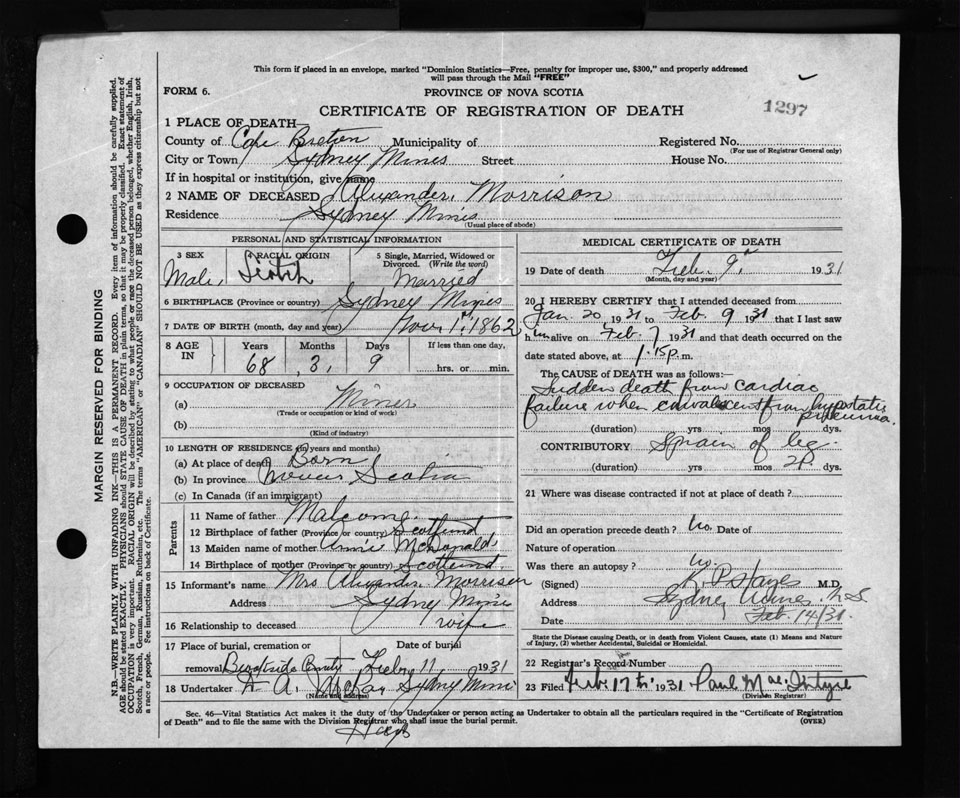 This form if placed in an envelope, marked "Dominion Statistics—Free, penalty for improper use, $300," and properly addressed
will pass through the Mail "FREE"
FORM 6.
PROVINCE OF NOVA SCOTIA
CERTIFICATE OF REGISTRATION OF DEATH
1297
1 PLACE OF DEATH
County of Cape Breton Municipality of Registered No.
(For use of Registrar General only)
City or Town Sydney Mines Street House No.
If in hospital or institution, give name
2 NAME OF DECEASED Alexander Morrison
Residence Sydney Mines
(Usual place of abode)
PERSONAL AND STATISTICAL INFORMATION
3 SEX RACIAL ORIGIN 5 Single, Married, Widowed or Divorced. (Write the word)
Male, Scotch Married
6 BIRTHPLACE (Province or country) Sydney Mines
7 DATE OF BIRTH (month, day and year) Nov. 1st, 1862
8 AGE IN Years Months Days If less than one day,
68 3, 9 hrs. or min.
9 OCCUPATION OF DECEASED
(a) Miner
(Trade or occupation or kind of work)
(b)
(Kind of industry)
10 LENGTH OF RESIDENCE (in years and months)
(a) At place of death Born
(b) In province Nova Scotia
(c) In Canada (if an immigrant)
Parents
11 Name of father Malcom
12 Birthplace of father (Province or country) Scotland
13 Maiden name of mother Annie McDonald
14 Birthplace of mother (Province or country) Scotland
15 Informant's name Mrs Alexander Morrison
Address Sydney Mines
16 Relationship to deceased wife
17 Place of burial, cremation or removal Date of burial
Feby 11 1931
18 Undertaker Sydney Mines
(Name and address)
MEDICAL CERTIFICATE OF DEATH
19 Date of death Feb. 9, 1931
(Month, day and year)
20 I HEREBY CERTIFY that I attended deceased from
Jan. 20, 1931 to Feb 9 1931 that I last saw
him alive on Feb 7 1931 and that death occurred on the
date stated above, at 1.15 p m.
The CAUSE of DEATH was as follows:
Sudden death from cardiac
failure when convalescent from hypostatic
pneumonia.
(duration) yrs. mos. dys.
CONTRIBUTORY Sprain of leg.
(duration) yrs mos 20 dys.
21 Where was disease contracted if not at place of death?
Did an operation precede death? No. Date of
Nature of operation
Was there an autopsy? No
(Signed) M.D.
Address Sydney Mines N.S.
Date Feb. 14/31
State the Disease causing Death, or in death from Violent Causes, state (1) Means and Nature
of Injury, (2) whether Accidental, Suicidal or Homicidal.
22 Registrar's Record Number
23 Filed Feb. 17th 1931 Paul MacIntyre
(Division Registrar)
Sec. 46—Vital Statistics Act makes it the duty of the Undertaker or person acting as Undertaker to obtain all the particulars required in the "Certificate of Registration
of Death" and to file the same with the Division Registrar who shall issue the burial permit. (OVER)
MARGIN RESERVED FOR BINDING
N.B.—WRITE PLAINLY WITH UNFADING INK—THIS IS A PERMANENT RECORD. Every item of information should be carefully supplied.
AGE should be stated EXACTLY. PHYSICIANS should STATE CAUSE OF DEATH in plain terms, so that it may be properly classified. Exact statement of
OCCUPATION is very important. RACIAL ORIGIN will be described by stating to what people or race the deceased person belonged, whether English, Irish,
Scotch, French, German, Russian, Ruthenian, etc. The terms "AMERICAN" or "CANADIAN" SHOULD NOT BE USED as they express citizenship but not
a race or people. See instructions on back of Certificate.